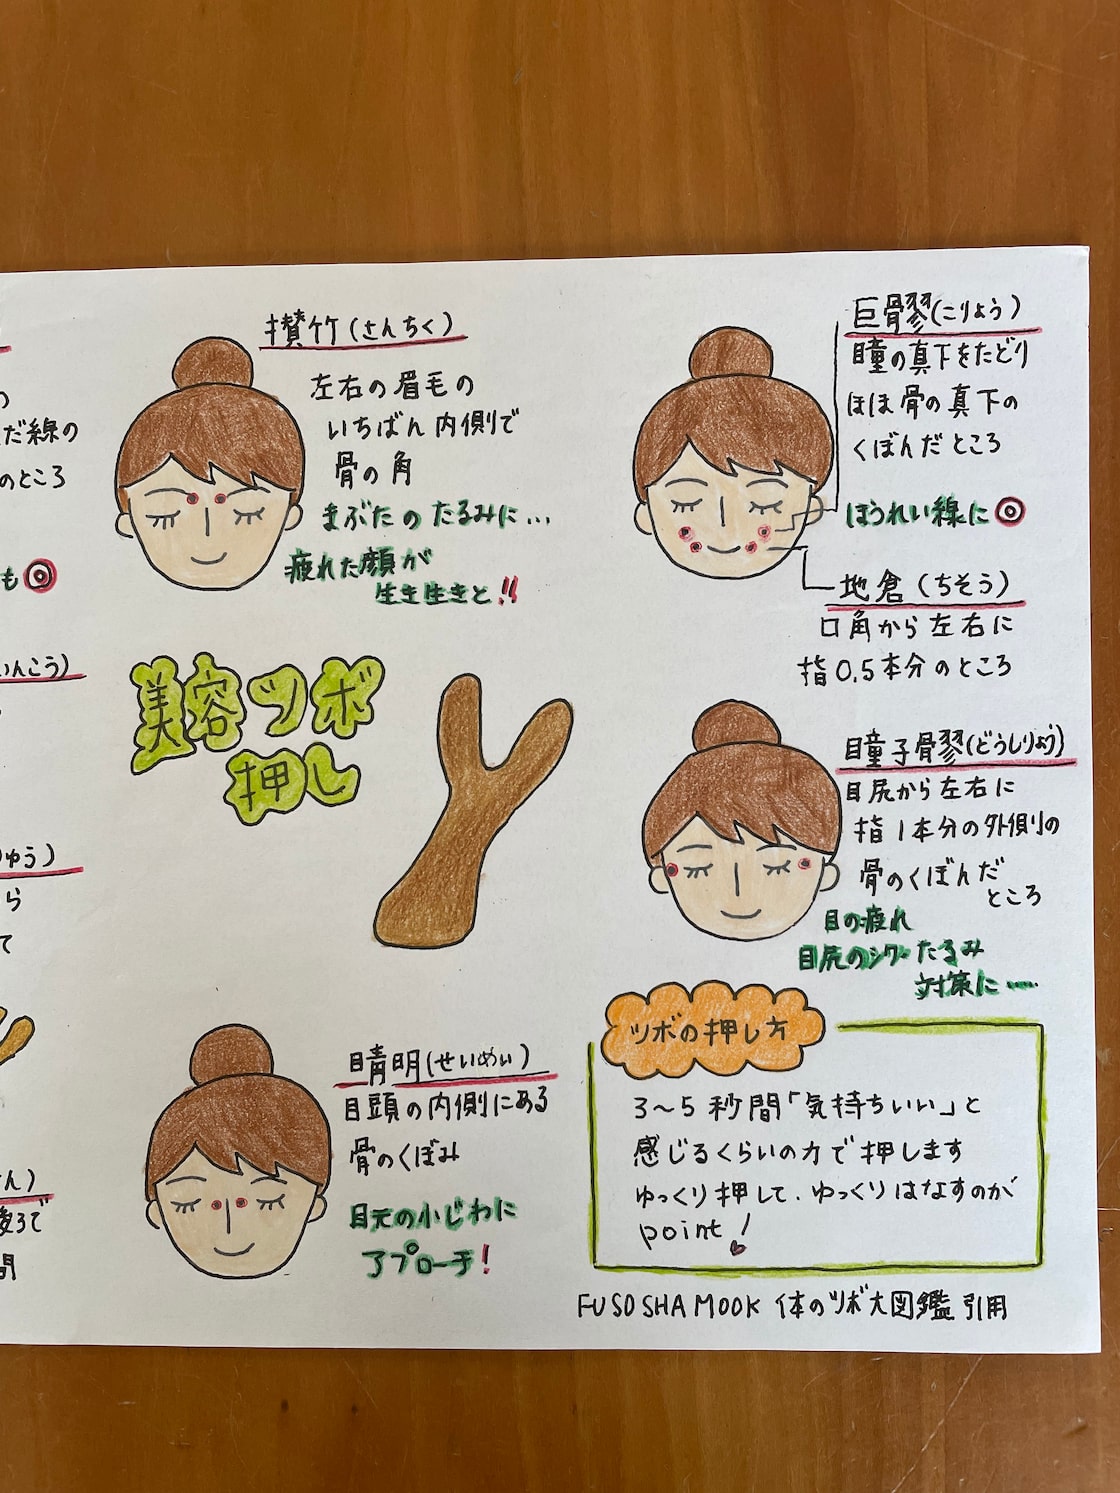 の
だ線の
のところ
も
いんこう)
ゅう)
ら
て
ん)
後ろで
間
攅竹(さんちく)
左右の眉毛の
いちばん内側で
骨の角
まぶたのたるみに…
疲れた顔が
生き生きと!!
巨骨翏(こりょう)
瞳の真下をたどり
ほほ骨の真下の
くぼんだところ
ほうれい線に◎
地倉(ちそう)
口角から左右に
指0.5本分のところ
美容ツボ
押し
瞳子骨翏(どうしりょう)
目尻から左右に
指1本分の外側の
骨のくぼんだ
ところ
目の疲れ
目尻のシワ・たるみ
対策に……
晴明(せいめい)
目頭の内側にある
骨のくぼみ
目元の小じわに
アプローチ!
ツボの押し方
3〜5秒間「気持ちいい」と
感じるくらいの力で押します
ゆっくり押して、ゆっくりはなすのが
point!
FUSOSHA MOOK 体のツボ大図鑑 引用